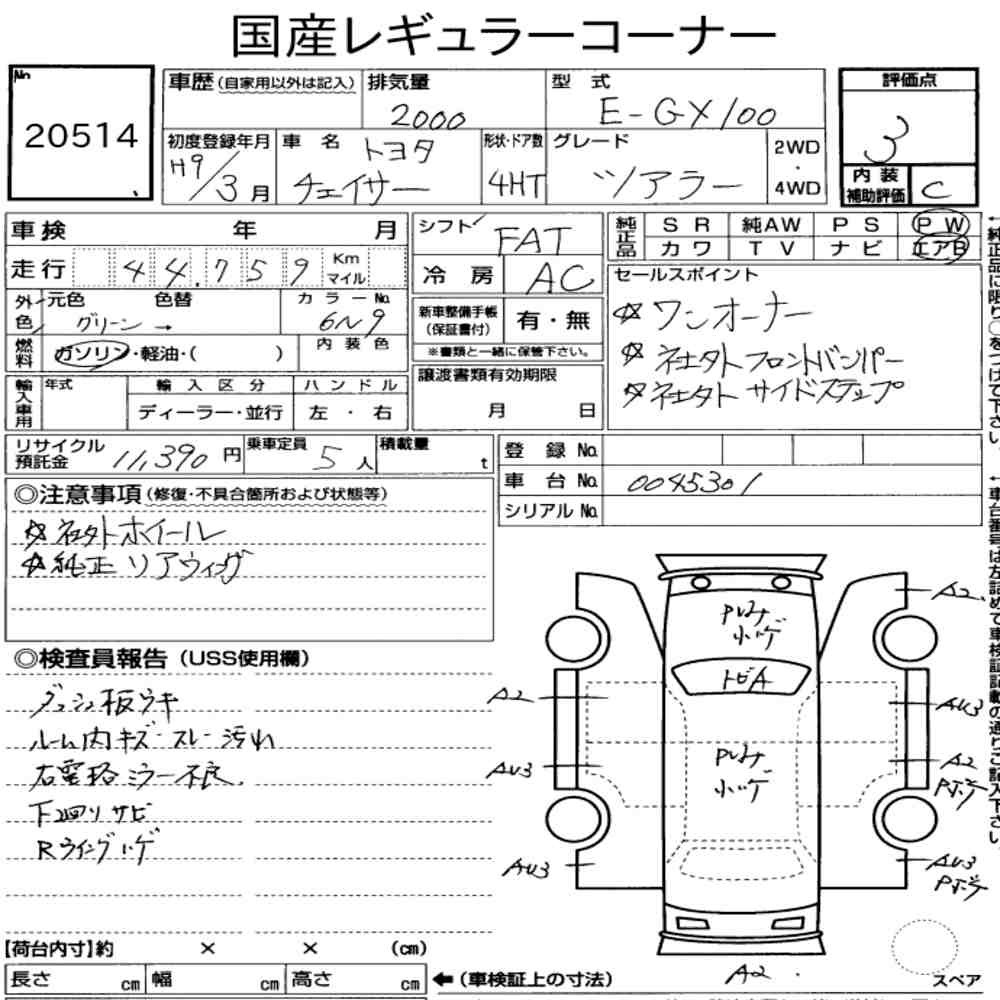 国産レギュラーコーナー
No.
20514
車歴(自家用以外は記入)
排気量
2000
型 式
E-GX100
評価点
3
内装補助評価
C
初度登録年月
H9/3月
車 名
トヨタ
チェイサー
形状・ドア数
4HT
グレード
ツアラー
2WD
・
4WD
車検 年 月
シフト
FAT
純正品
SR 純AW PS PW
カワ TV ナビ エアB
走行 44,759 Km マイル
冷房 AC
セールスポイント
☆ ワンオーナー
☆ 社外フロントバンパー
☆ 社外サイドステップ
外色 元色 色替
グリーン →
カラーNo.
6N9
新車整備手帳(保証書付)
有・無
※書類と一緒に保管下さい。
燃料 ガソリン・軽油・( )
内装色
輸入車用
年式
輸入区分
ディーラー・並行
ハンドル
左 ・ 右
譲渡書類有効期限
月 日
リサイクル預託金 11,390円
乗車定員 5人
積載量 t
登 録 No.
車 台 No. 0045301
シリアル No.
◎注意事項(修復・不具合箇所および状態等)
☆ 社外ホイール
☆ 純正リアウィング
◎検査員報告(USS使用欄)
ダッシュ板ウキ
ルーム内キズ・スレ・汚れ
右電格ミラー不良.
下回りサビ
Rウイングハゲ
A2
AU3
AU3
Pレキ
小ハゲ
トビA
Pレキ
小ハゲ
A2
AU3
A2
Pボケ
AU3
Pボケ
A2
スペア
【荷台内寸】約 × × (cm)
長さ cm 幅 cm 高さ cm
←(車検証上の寸法)
←純正品に限り○をつけて下さい。
←車台番号は左詰めで車検証記載の通りご記入下さい。